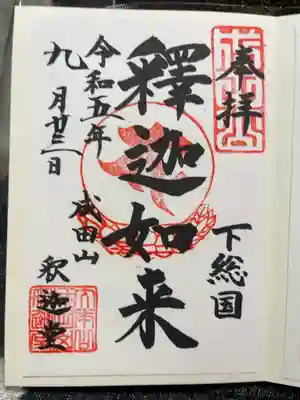 奉拝
下総国
釋迦如来
令和五年
九月廿三日
成田山
釈迦堂